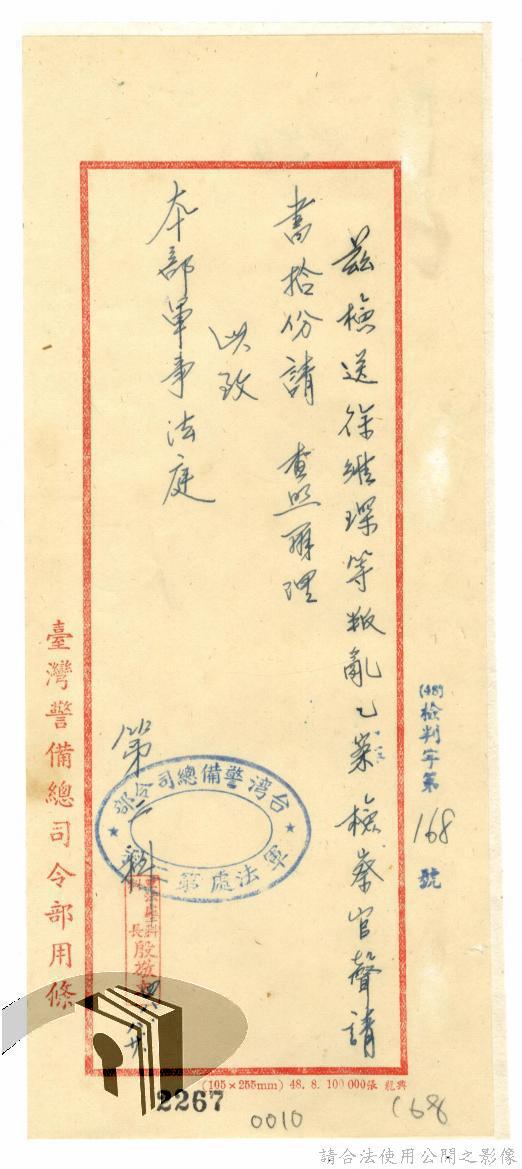 (48)檢判字第168號
茲檢送徐維琛等叛亂乙案檢察官聲請
書拾份請 查照辦理
此致
本部軍事法庭
第 科
台湾警備總司令部
軍法處第
長殷敬
臺灣警備總司令部用條
(105×255mm) 48. 8. 100000張 興龍
2267
0010
168
請合法使用公開之影像